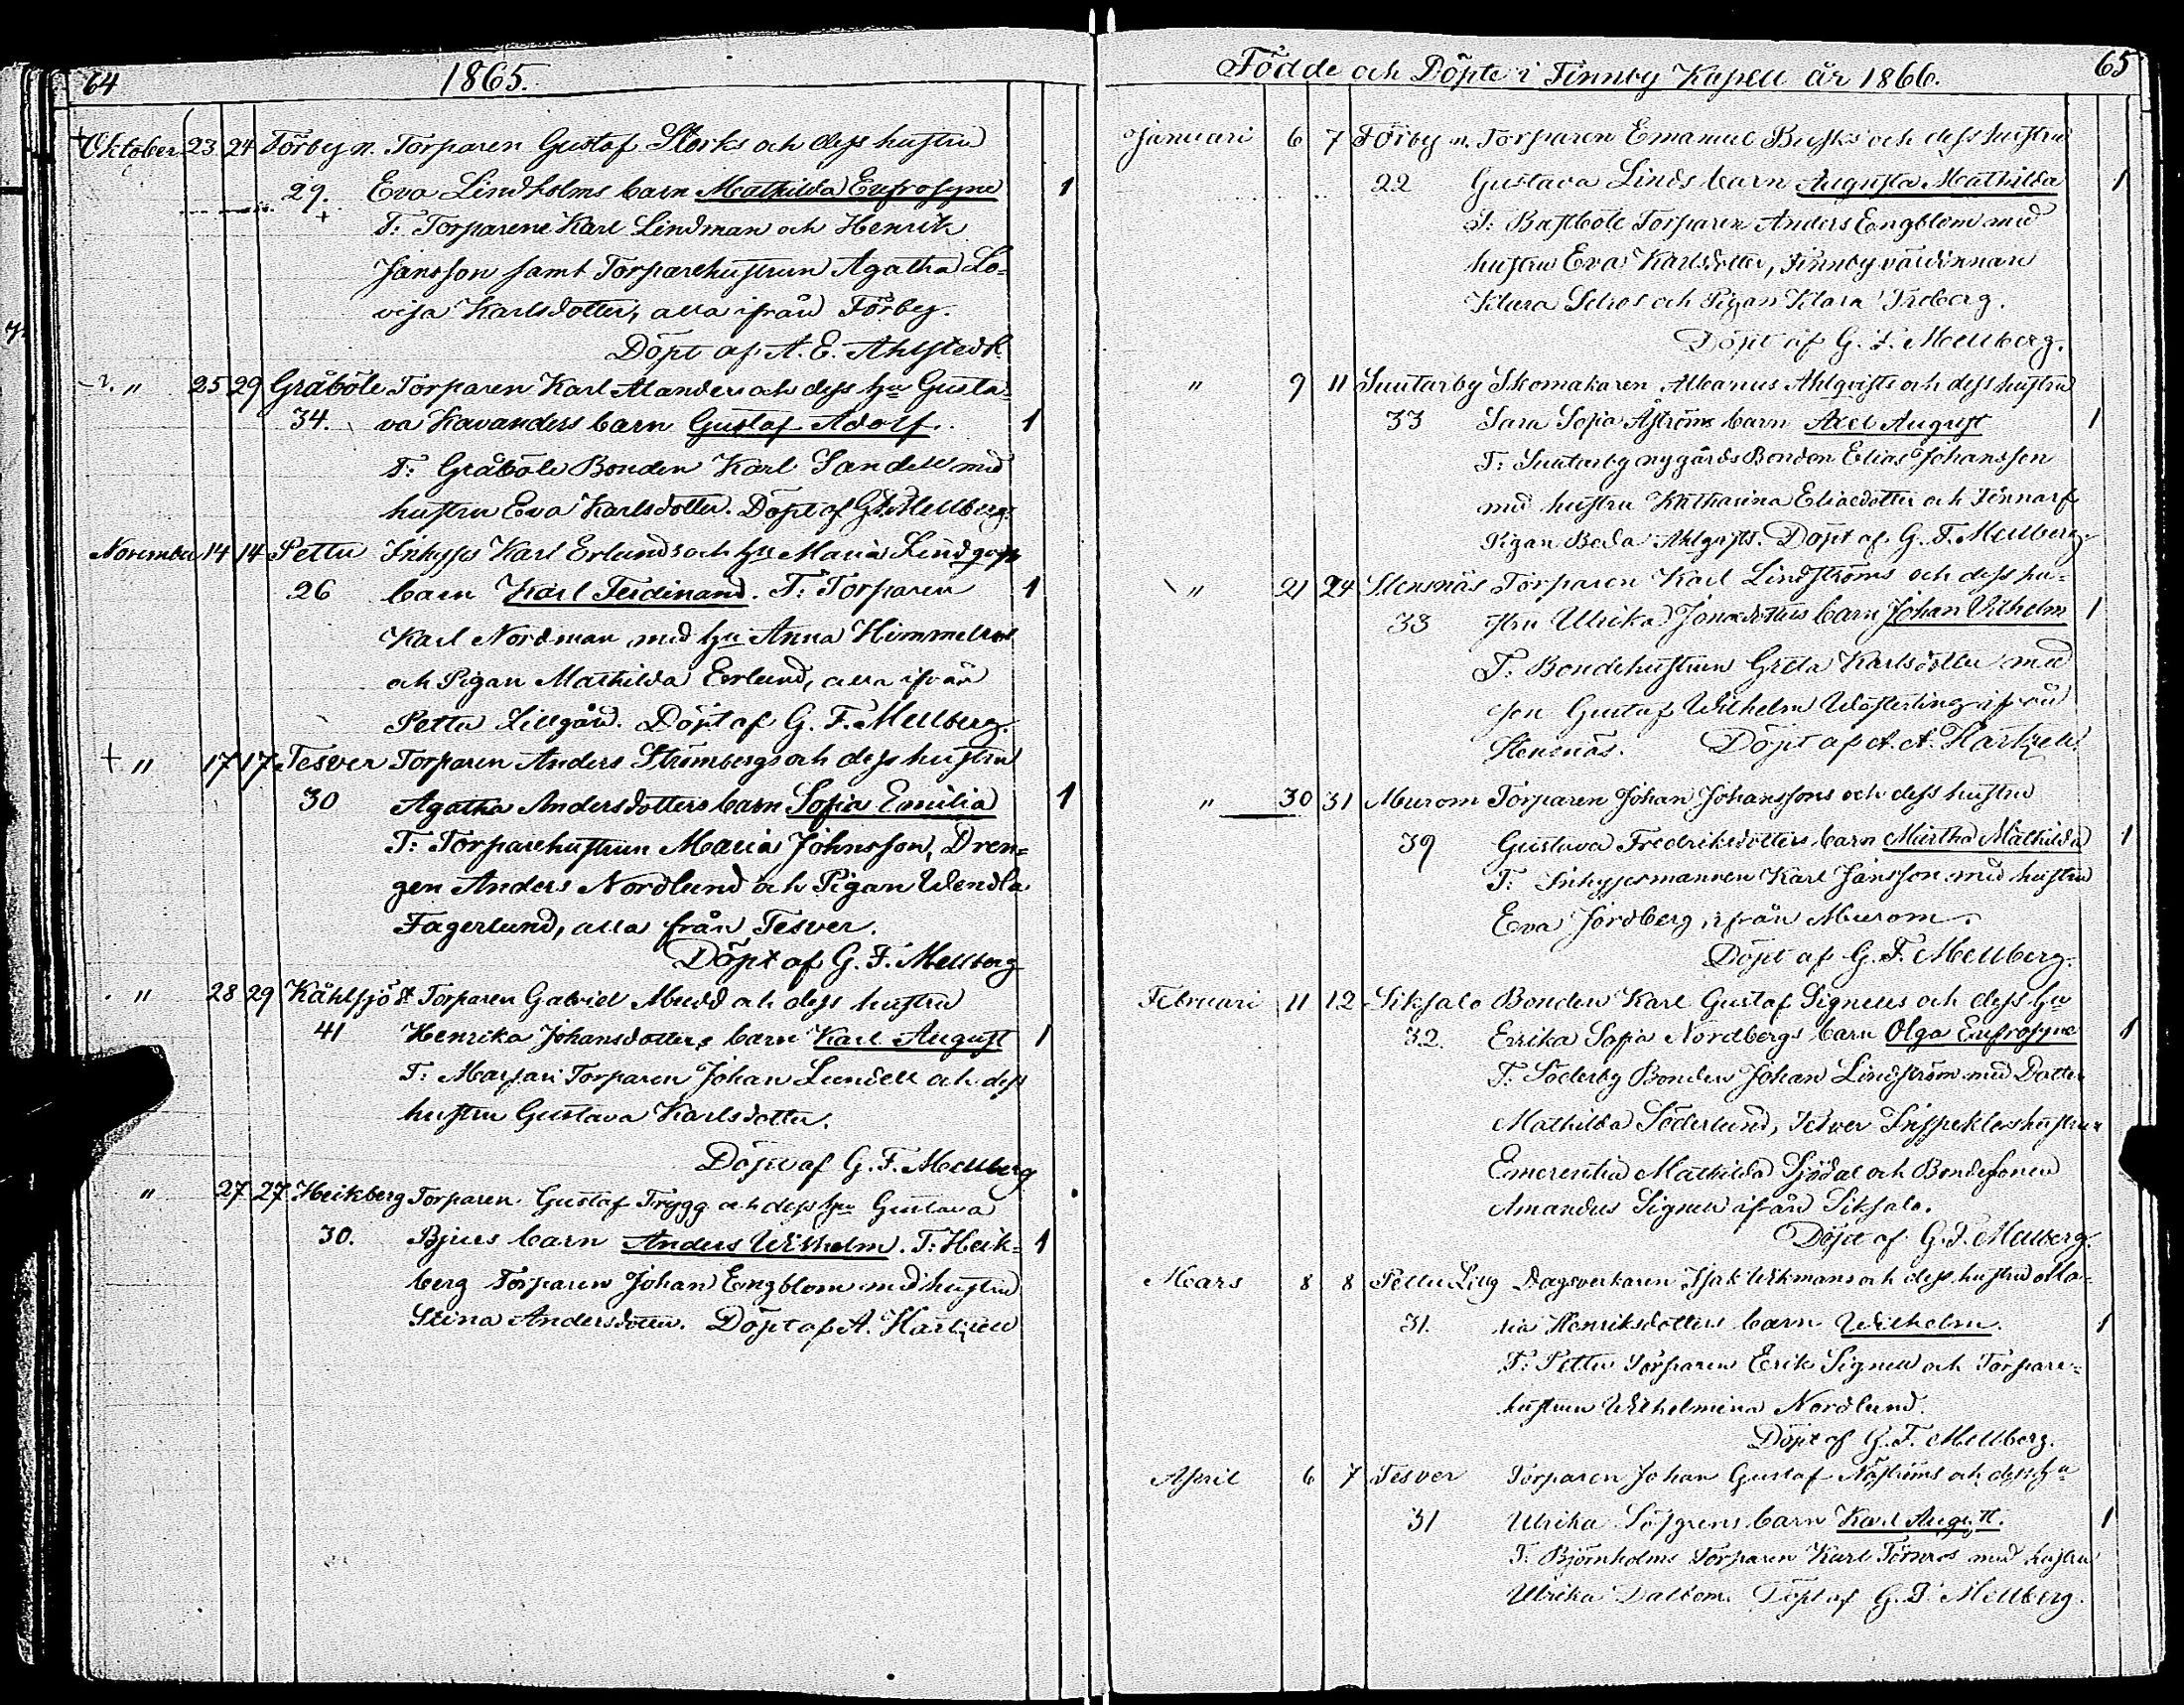 64
1865.
Oktober 23 24 Förby n. Torparen Gustaf Storks och dess hustru
29. Eva Lindholms barn Mathilda Eufrosyne 1
T: Torparene Karl Lindman och Henrik
Jansson samt Torparehustrun Agatha Lo=
visa Karlsdotter, alla ifrån Förby.
Döpt af A. E. Ahlstedt
" 25 29 Gråböle Torparen Karl Alanders och dess hu Gusta=
34. va Kavanders barn Gustaf Adolf. 1
T: Gråböle Bonden Karl Sandell med
hustru Eva Karlsdotter. Döpt af G F Mellberg.
November 14 14 Pettu Inhyses Karl Erlunds och hu Maria Lindqvists
26 barn Karl Ferdinand. T: Torparen 1
Karl Nordman med hu Anna Himmelroos
och Pigan Mathilda Erlund, alla ifrån
Pettu Lillgård. Döpt af G. F. Mellberg.
+ " 17 17 Tesver Torparen Anders Strömbergs och dess hustru
30 Agatha Andersdotters barn Sofia Emilia 1
T: Torparehustrun Maria Johnsson, Dren=
gen Anders Nordlund och Pigan Wendla
Fagerlund, alla från Tesver.
Döpt af G. F. Mellberg
" 28 29 Kåhlsjö Torparen Gabriel Mudd och dess hustru
41 Henrika Johansdotters barn Karl August 1
T: Torparen Johan Lundell och dess
hustru Gustava Karlsdotter.
Döpt af G. F. Mellberg
" 27 27 Heikberg Torparen Gustaf Trygg och dess hu Gustava
30. Bjurs barn Anders Wilhelm. T: Heik= 1
berg Torparen Johan Engblom med hustru
Stina Andersdotter. Döpt af A. Hartzell
Födde och Döpte i Finnby Kapell år 1866.
65
Januari 6 7 Förby n. Torparen Emanuel Busks och dess hustru
22 Gustava Linds barn Augusta Mathilda 1
T: Bastböle Torparen Anders Engblom med
hustru Eva Karlsdotter, Finnby värdinnan
Klara Selros och Pigan Klara Freberg.
Döpt af G. F. Mellberg.
" 9 11 Suutarby Skomakaren Albanus Ahlqvists och dess hustru
33 Sara Sofia Åströms barn Axel August 1
T: Suutarby nygårds Bonden Elias Johansson
med hustru Katharina Eliaedotter och
Pigan Beda Ahlqvist. Döpt af G. F. Mellberg.
" 21 24 Stensnäs Torparen Karl Lindströms och dess hu=
33 stru Ulrika Jonasdotters barn Johan Vilhelm 1
T: Bondehustrun Greta Karlsdotter med
son Gustaf Wilhelm Westerling ifrån
Stensnäs. Döpt af A. A. Hartzell
" 30 31 Murom Torparen Johan Johanssons och dess hustru
39 Gustava Fredriksdotters barn Martha Mathilda 1
T: Inhysesmannen Karl Jansson med hustru
Eva Jordberg, ifrån Murom.
Döpt af G. F. Mellberg.
Februari 11 12 Siksalo Bonden Karl Gustaf Signells och dess hu
32. Erika Sofia Nordbergs barn Olga Eufrosyne 1
T: Söderby Bonden Johan Lindström med Dotter
Mathilda Söderlund, Tesver Inspektorshustrun
Emerentia Mathilda Sjödal och Bondesonen
Amandus Signell ifrån Siksalo.
Döpt af G. F. Mellberg.
Mars 8 8 Pettu Lillg Dagsverkaren Isak Wikmans och dess hustru Ma=
31. ria Henriksdotters barn Wilhelm. 1
T: Pettu Torparen Erik Signell och Torpare=
hustrun Wilhelmina Nordlund.
Döpt af G. F. Mellberg.
April 6 7 Tesver Torparen Johan Gustaf Näströms och dess hu
31 Ulrika Löfgrens barn Karl August. 1
T: Björnholms Torparen Karl Törnros med hustru
Ulrika Dalbom. Döpt af G. F. Mellberg.